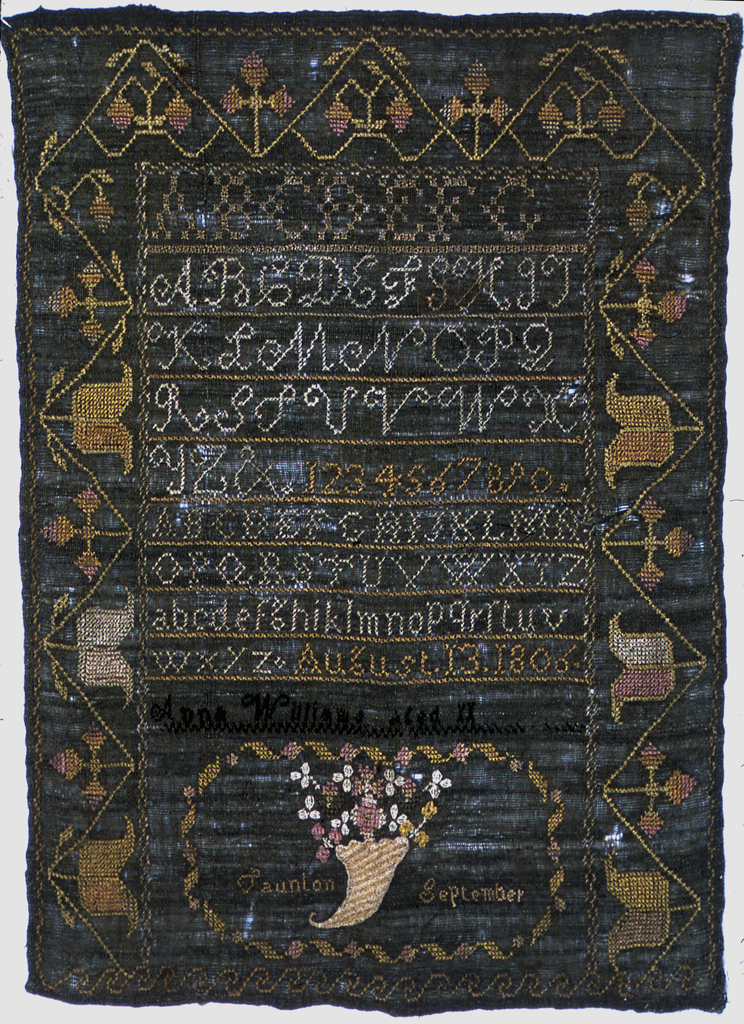 ABCDEFG
ABCDEFGHIJ
KLMNOPQ
RSTUVWX
YZ& 1234567890.
ABCDEFGHIJKLMN
OPQRSTUVWXYZ
abcdefghiklmnopqrstuv
wxyz. August. 13. 1806.
Anna Williams aged 11
Taunton September